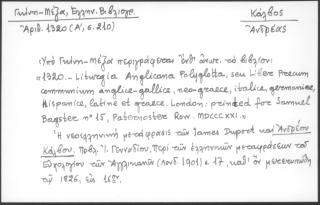 Γκίνη-Μέξα, Ἑλλην. Βιβλιογρ.
Ἀριθ. 1320 (Α', σ. 210)
Κάλβος
Ἀνδρέας
Ὑπὸ Γκίνη-Μέξα περιγράφεται ὑπ' ὄψιν. τὸ βιβλίον:
«1320.- Liturgia Anglicana Polyglotta, seu Liber Precum
communium anglice-gallice, neo-graece, italice, germanice,
Hispanice, latine et graece. London: printed for Samuel
Bagster n° 15, Paternoster Row. MDCCCXXI.»
Ἡ νεοελληνικὴ μετάφρασις τῶν James Duport καὶ Ἀνδρέου
Κάλβου. Πρβλ. Ἰ. Γενναδίου, Περὶ τῶν ἑλληνικῶν μεταφράσεων τοῦ
Εὐχολογίου τῶν Ἀγγλικανῶν (Λονδ. 1901) σ. 17, καθ' ὃν μετετυπώθη
τῷ 1826, εἰς 16ον.